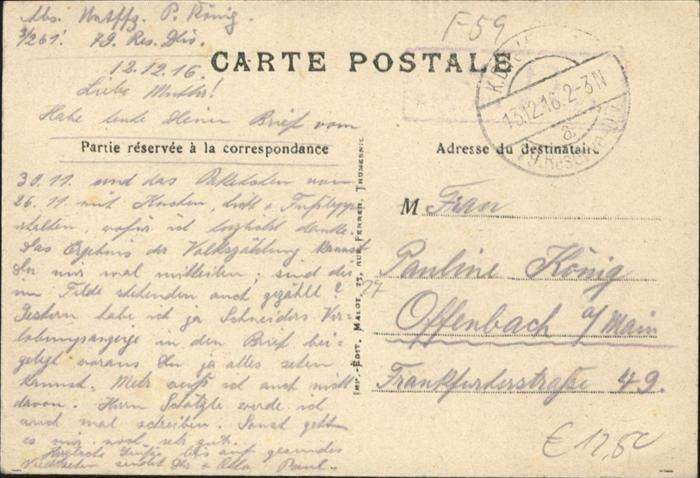 Abs. Untffz. P. König.
3/261. 79. Res. Div.
F 59
CARTE POSTALE
12.12.16.
Liebe Mutter!
Habe heute Deinen Brief vom
Partie réservée à la correspondance
Adresse du destinataire
15.12.16. 2-3 N
30.11. und das Paketchen vom
26.11. mit Kuchen,
erhalten, wofür ich herzlichst danke.
Das Ergebnis der Volkszählung kannst
Du mir mal mitteilen; sind die
im Felde stehenden auch gezählt?
Gestern habe ich ja Schneiders Ver-
lobungsanzeige in den Brief bei-
gelegt woraus Du ja alles sehen
kannst. Mehr weiß ich auch nicht
davon. Herrn Schätzle werde ich
auch mal schreiben. Sonst geht
es mir noch sehr gut.
Herzliche Grüße bis auf gesundes
Wiedersehen sendet Dir + Paul.
IMP.-EDIT. MALOT, 27, RUE FERRER, THUMESNIL
27
M Frau
Pauline König
Offenbach a/Main
Frankfurterstraße 49.
€ 12,50